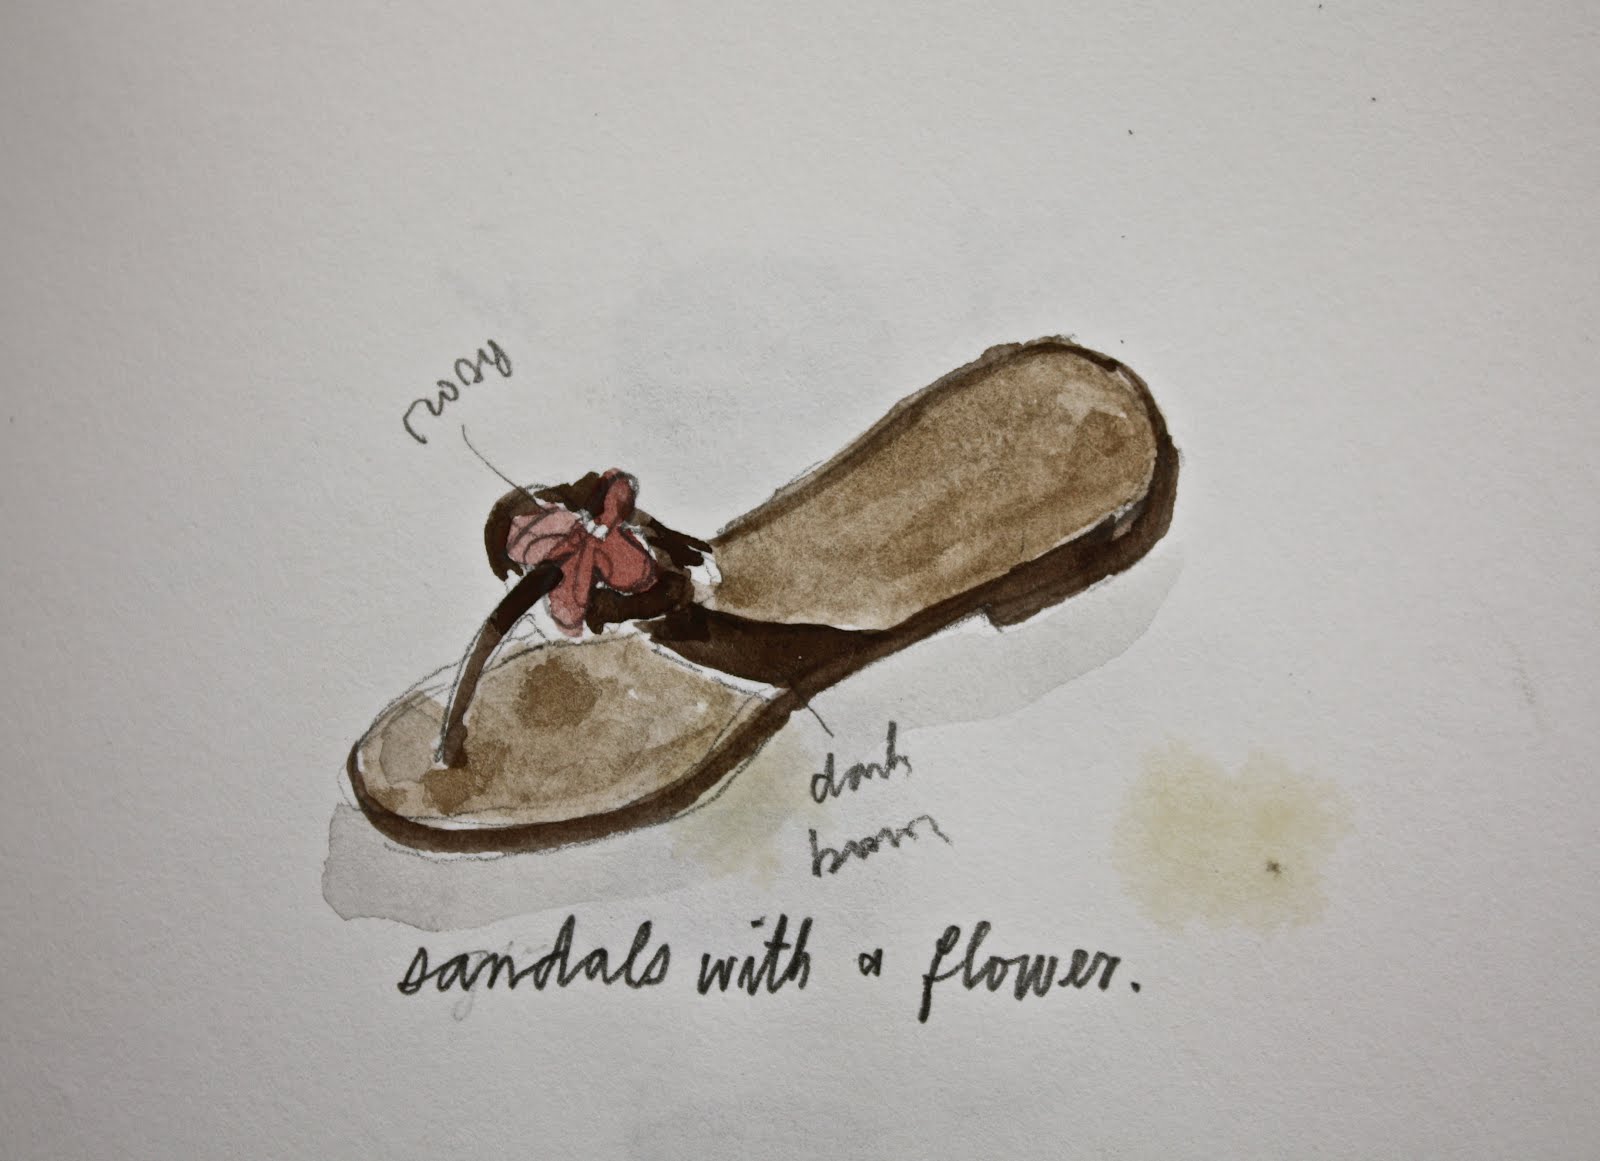 rosy
dark
brown
sandals with a flower.